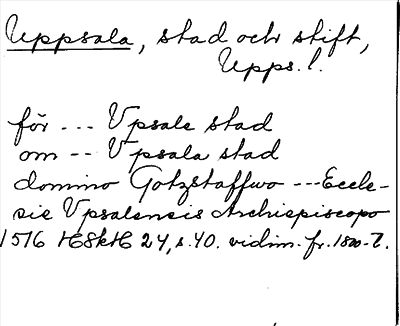 Uppsala, stad och stift,
Upps. l.
för --- Vpsale stad
om -- Vpsala stad
domino Gotzstaffwo --- Eccle-
sie Vpsalensis Archiepiscopo
1516 HSkH 24, s. 40. vidim. fr. 1500-t.